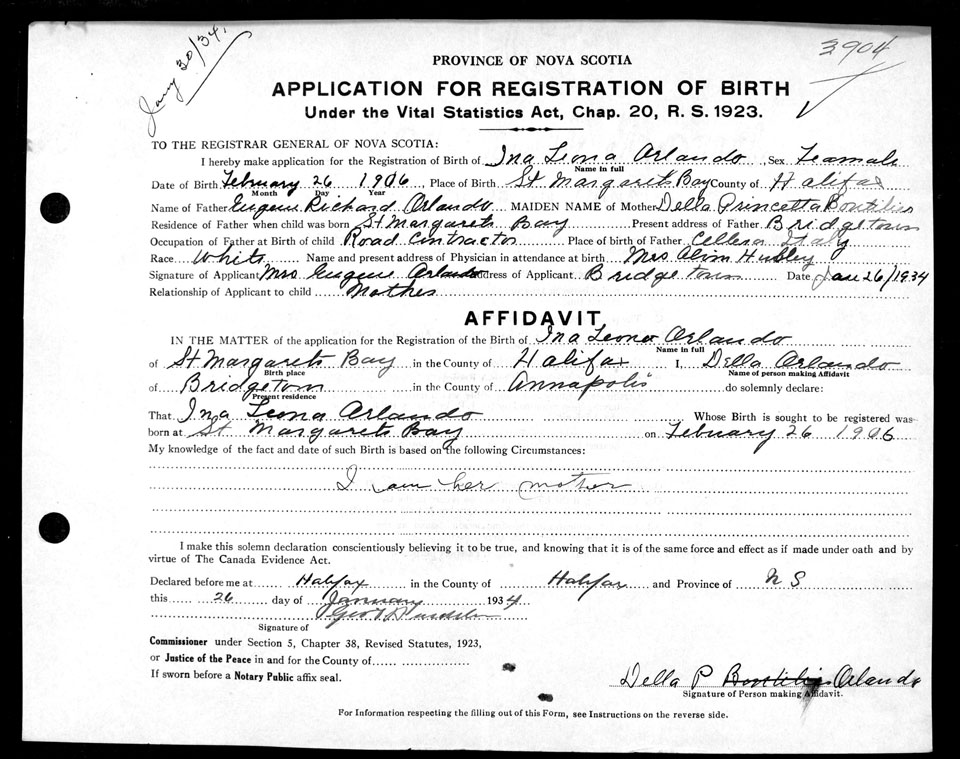 Jany 30/34.
3904
PROVINCE OF NOVA SCOTIA
APPLICATION FOR REGISTRATION OF BIRTH
Under the Vital Statistics Act, Chap. 20, R. S. 1923.
TO THE REGISTRAR GENERAL OF NOVA SCOTIA:
I hereby make application for the Registration of Birth of Ina Leona Orlando Sex Feamale
Name in full
Date of Birth February 26 1906 Place of Birth St Margarets Bay County of Halifax
Month Day Year
Name of Father Eugene Richard Orlando MAIDEN NAME of Mother Della Princetta Boutilier
Residence of Father when child was born St Margarets Bay Present address of Father Bridgetown
Occupation of Father at Birth of child Road Contractor Place of birth of Father Cellera Italy
Race White Name and present address of Physician in attendance at birth Mrs Alvin Hubley
Signature of Applicant Mrs Eugene Orlando Address of Applicant Bridgetown Date Jan 26/1934
Relationship of Applicant to child Mother
AFFIDAVIT
IN THE MATTER of the application for the Registration of the Birth of Ina Leona Orlando
Name in full
of St Margarets Bay in the County of Halifax I, Della Orlando
Birth place Name of person making Affidavit
of Bridgetown in the County of Annapolis do solemnly declare:
Present residence
That Ina Leona Orlando Whose Birth is sought to be registered was
born at St Margarets Bay on February 26 1906
My knowledge of the fact and date of such Birth is based on the following Circumstances:
I am her mother
I make this solemn declaration conscientiously believing it to be true, and knowing that it is of the same force and effect as if made under oath and by
virtue of The Canada Evidence Act.
Declared before me at Halifax in the County of Halifax and Province of N S
this 26 day of January 1934
Geo
Signature of
Commissioner under Section 5, Chapter 38, Revised Statutes, 1923,
or Justice of the Peace in and for the County of
If sworn before a Notary Public affix seal.
Della P Boutilier Orlando
Signature of Person making Affidavit.
For Information respecting the filling out of this Form, see Instructions on the reverse side.